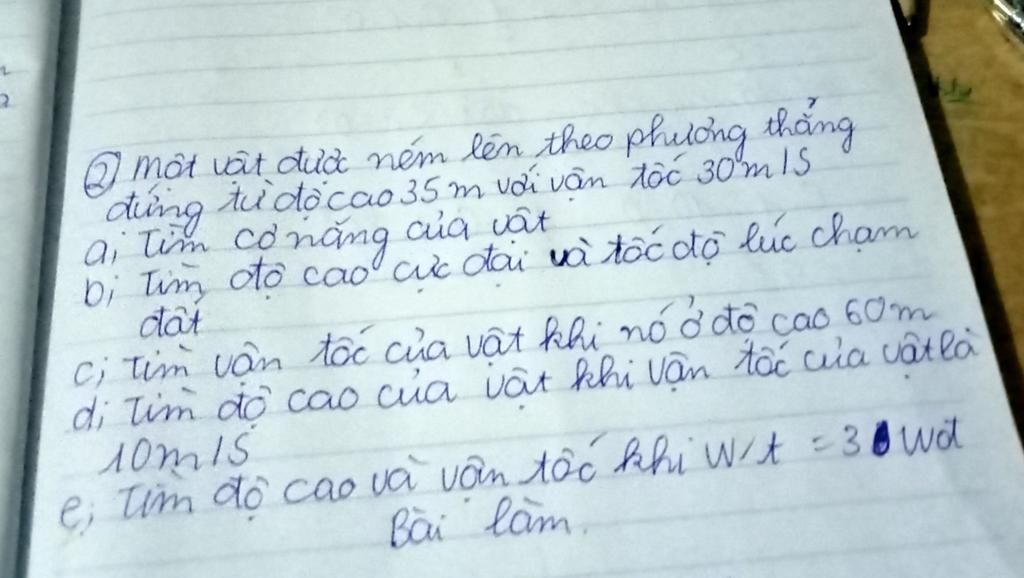 ② một vật được ném lên theo phương thẳng
đứng từ độ cao 35m với vận tốc 30m/s
a; Tìm cơ năng của vật
b; Tìm độ cao cực đại và tốc độ lúc chạm
đất
c; Tìm vận tốc của vật khi nó ở độ cao 60m
d; Tìm độ cao của vật khi vận tốc của vật là
10m/s
e; Tìm độ cao và vận tốc khi W/t = 3 Wđ
Bài làm.